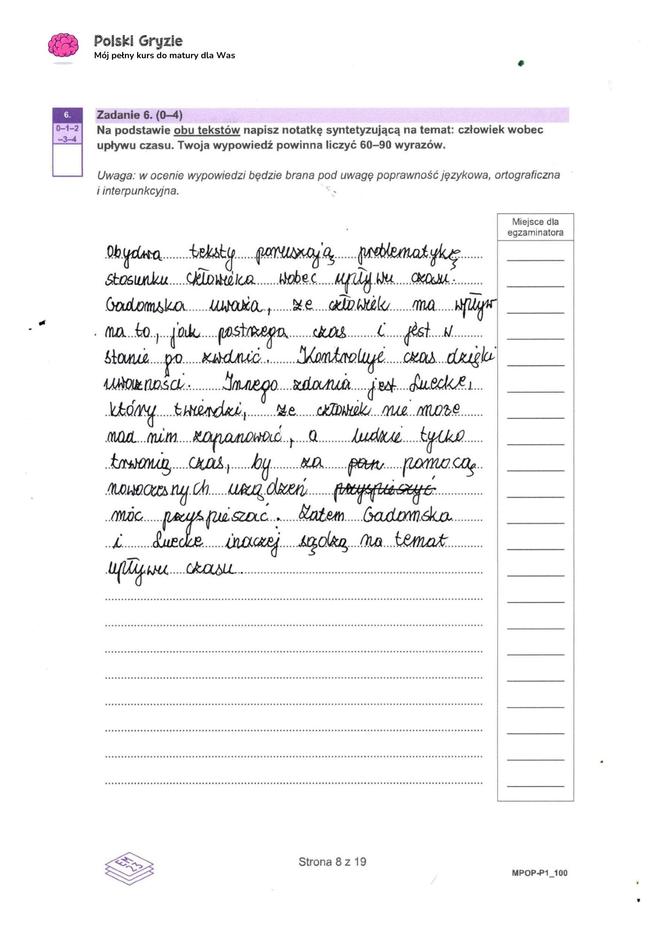 Polski Gryzie
Mój pełny kurs do matury dla Was
6.
0–1–2
–3–4
Zadanie 6. (0–4)
Na podstawie obu tekstów napisz notatkę syntetyzującą na temat: człowiek wobec
upływu czasu. Twoja wypowiedź powinna liczyć 60–90 wyrazów.
Uwaga: w ocenie wypowiedzi będzie brana pod uwagę poprawność językowa, ortograficzna
i interpunkcyjna.
Miejsce dla
egzaminatora
Obydwa teksty poruszają problematykę
stosunku człowieka wobec upływu czasu.
Gadomska uważa, że człowiek ma wpływ
na to, jak postrzega czas i jest w
stanie go zwolnić. Kontroluje czas dzięki
uważności. Innego zdania jest Luecke,
który twierdzi, że człowiek nie może
nad nim zapanować, a ludzie tylko
trwonią czas, by za pom pomocą
nowoczesnych urządzeń przyspieszyć
móc przyspieszać. Zatem Gadomska
i Luecke inaczej sądzą na temat
upływu czasu.
Strona 8 z 19
MPOP-P1_100